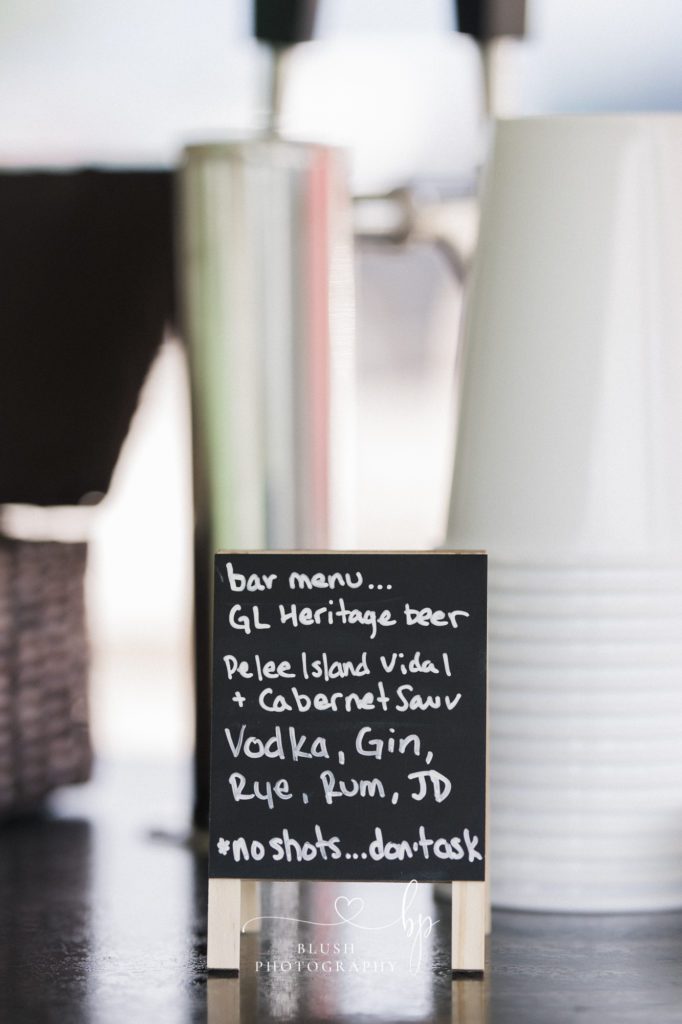 bar menu...
GL Heritage beer
Pelee Island Vidal
+ Cabernet Sauv
Vodka, Gin,
Rye, Rum, JD
*no shots...don't ask
by
BLUSH
PHOTOGRAPHY